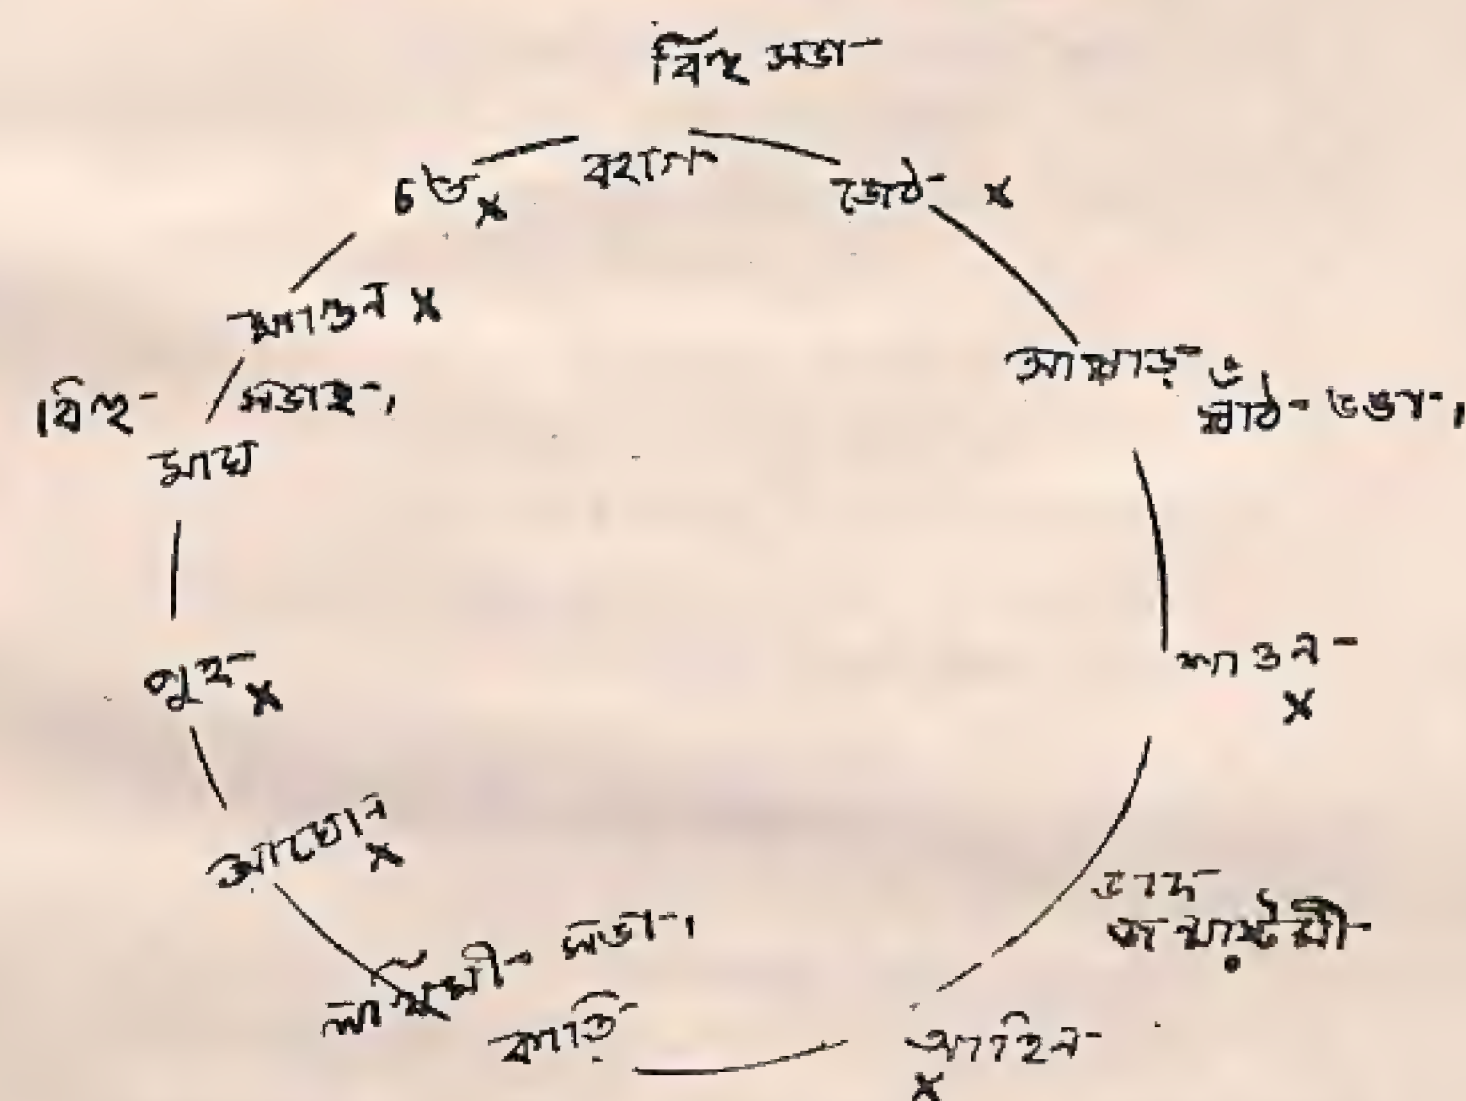 বিহু সভা
বহাগ
জেঠ x
আষাঢ়
শাওন
x
ভাদ
জন্মাষ্টমী
আহিন
x
কাতি
সভা।
আঘোন
x
পুহ
x
মাঘ
বিহু
সভাহ।
ফাগুন x
চত
x